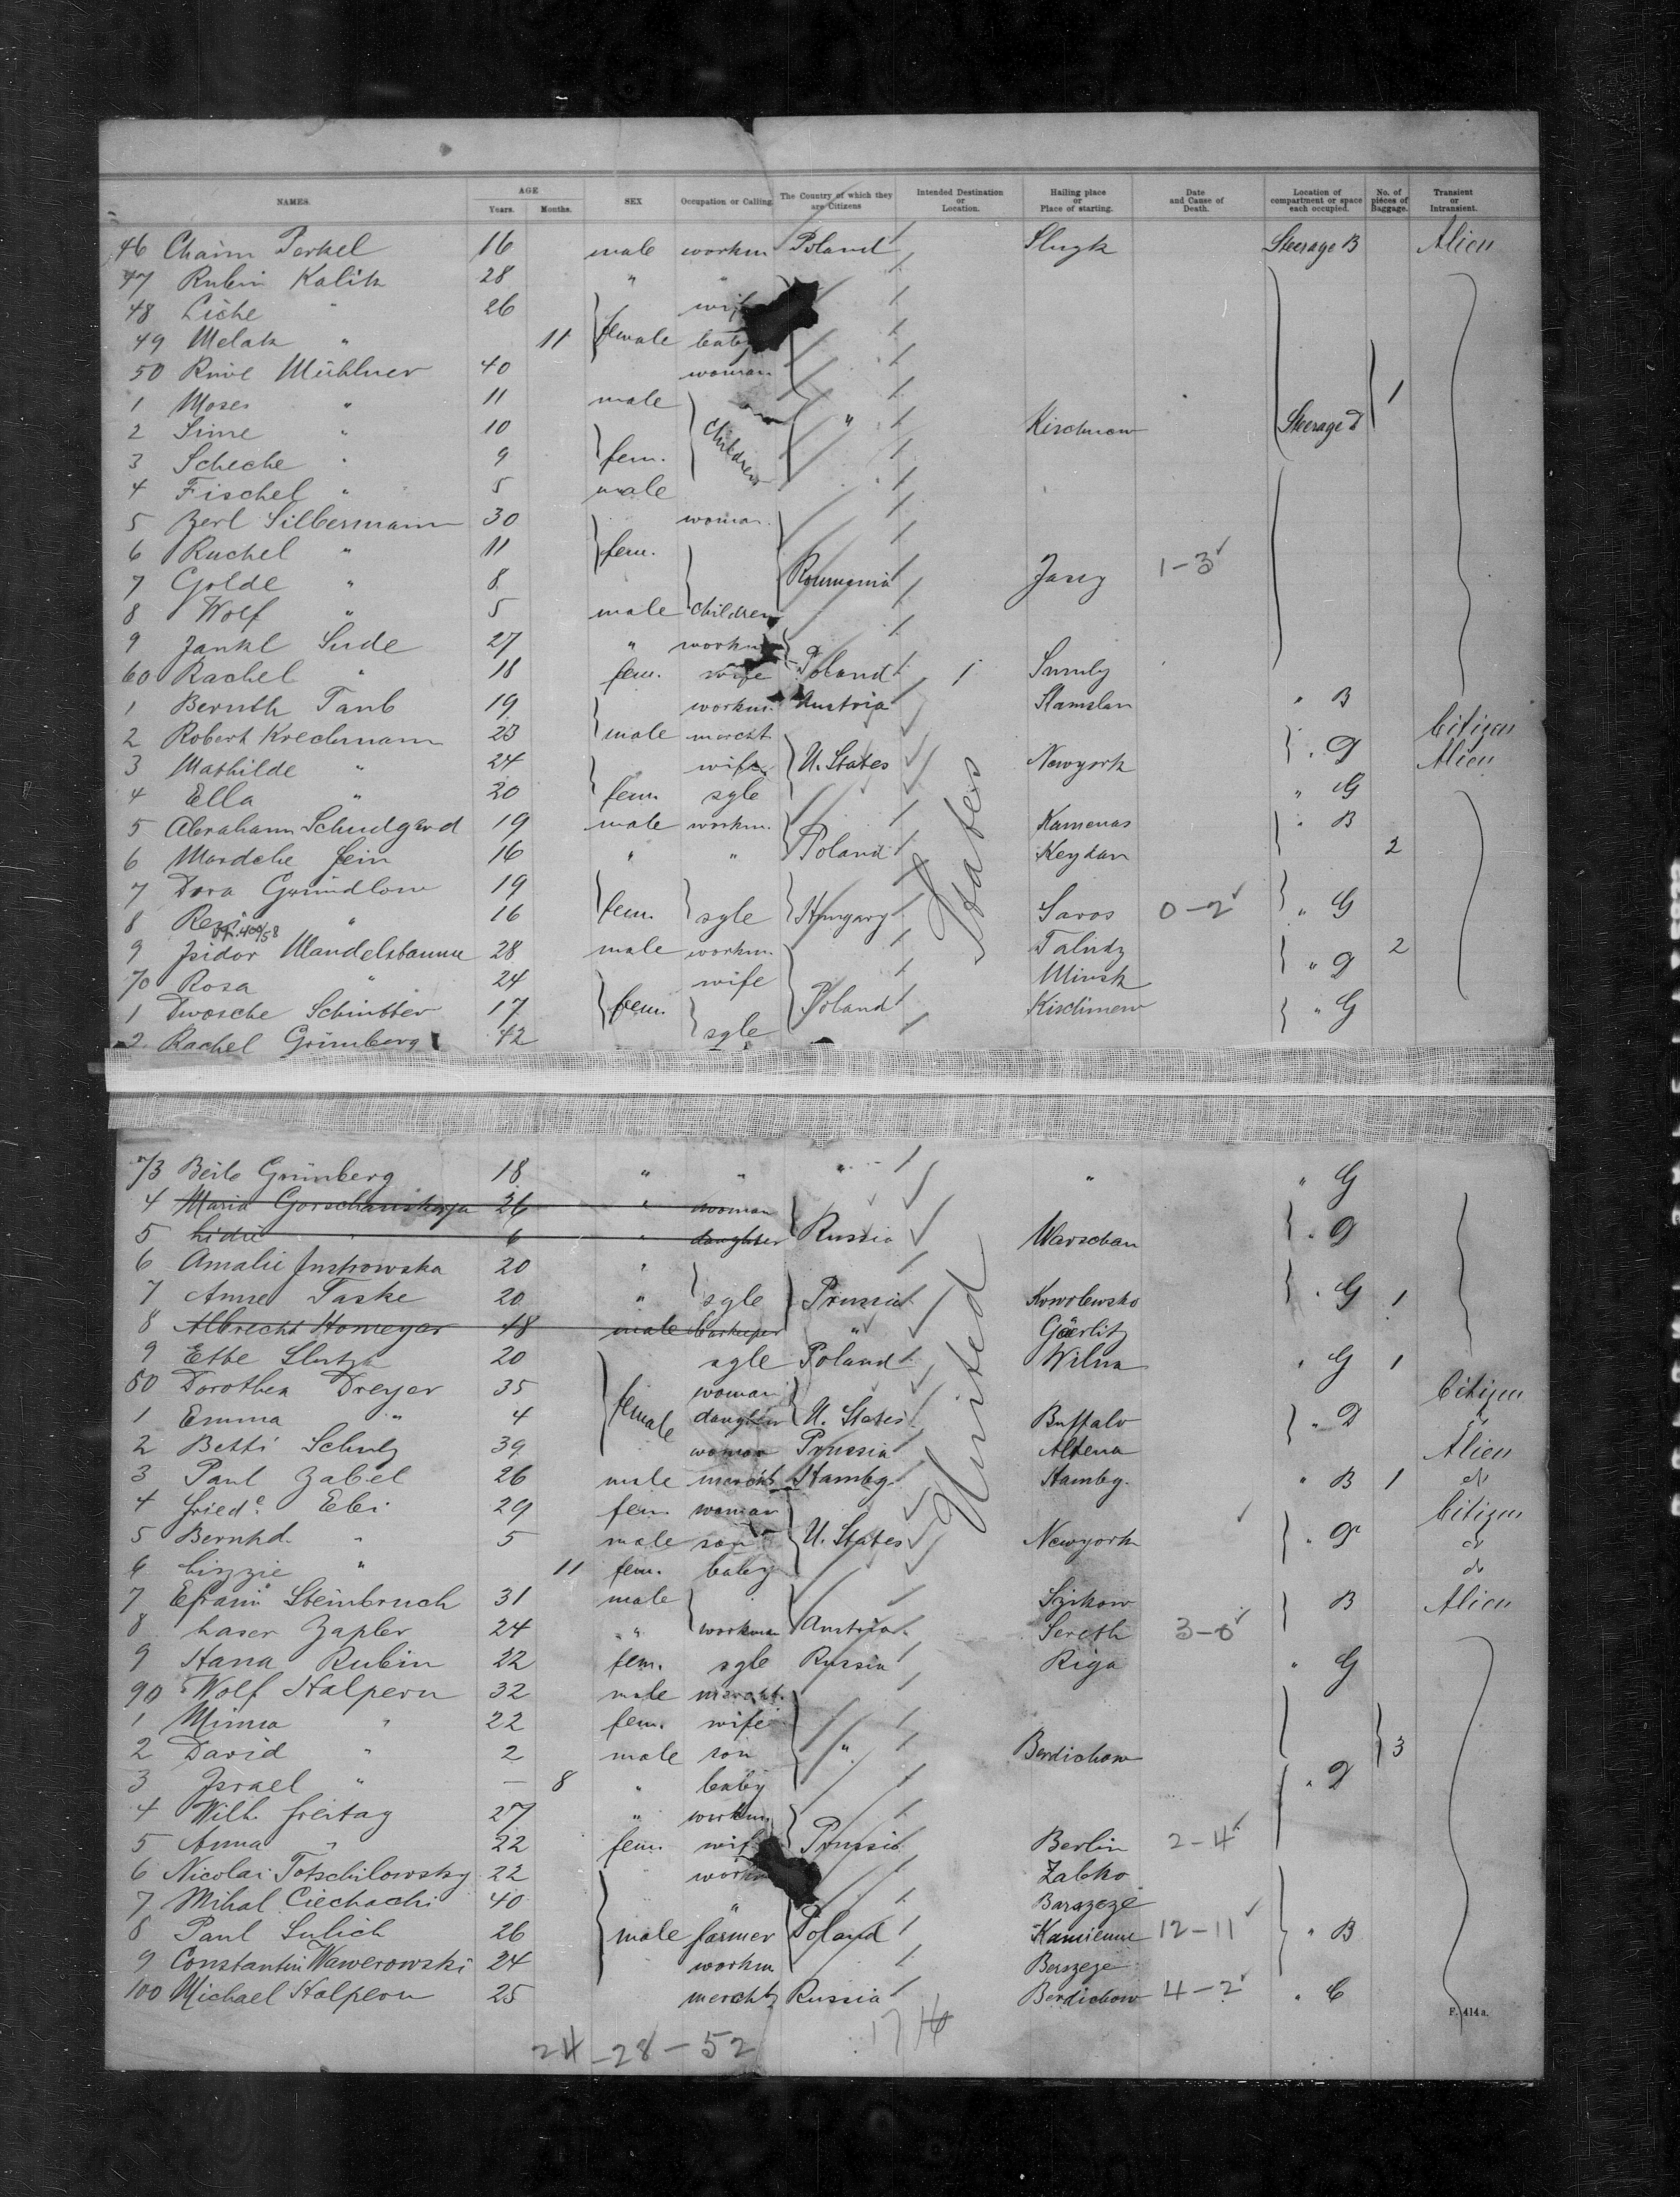 NAMES. AGE Years. Months. SEX Occupation or Calling The Country of which they are Citizens Intended Destination or Location. Hailing place or Place of starting. Date and Cause of Death. Location of compartment or space each occupied. No. of pieces of Baggage. Transient or Intransient.
46 Chaim Perkel 16 male workm Poland Slugk Steerage B Alien
47 Rubin Kalik 28 " "
48 Liche " 26 wife
49 Melak " 11 female baby
50 Rive Mühlner 40 woman
1 Moses " 11 male 1
2 Sime " 10 Children " Kischinew Steerage D
3 Scheche " 9 fem.
4 Fischel " 5 male
5 Zerl Silbermann 30 woman
6 Ruchel " 11 fem.
7 Golde " 8 Roumania Jassy 1-3
8 Wolf " 5 male children
9 Jankl Sude 27 " workm
60 Rachel " 18 fem. wife Poland
1 Bernth Taub 19 workm. Austria Stamslau " B
2 Robert Krechmann 23 male mercht Citizen
3 Mathilde " 24 wife U. States Newyork " D Alien
4 Ella " 20 fem. sgle " G
5 Abraham Schudgard 19 male workm. Kamenas " B
6 Mardche Fein 16 " " Poland Keydan 2
7 Dora Grundlow 19
8 Resi " 16 fem. sgle Hungary Saros 0-2 " G
9 Isidor Mandelsbaum 28 male workm. 2
70 Rosa " 24 wife Minsk " D
1 Dwosche Schuster 17 fem. Poland Kischinew " G
2 Rachel Grünberg 42 sgle
United States
73 Beile Grünberg 18 " " " " " G
4 Maria Gorschanskaja 26 " woman
5 Lidie " 6 " daughter Russia Warschau " D
6 Amalie 20 "
7 Anna Taske 20 " sgle Prussia Kowolewsko " G 1
8 Albrecht Homeyer 48 male barkeeper " Göerlitz
9 Etbe Slutzk 20 sgle Poland Wilna " G 1
80 Dorothea Dreyer 35 woman Citizen
1 Emma " 4 female daughter U. States Buffalo " D "
2 Betti Schulz 39 woman Prussia Altena Alien
3 Paul Zabel 26 male mercht Hambg. Hambg. " B 1 do
4 Friede Ebi 29 fem. woman Citizen
5 Bernhd. " 5 male son U. States Newyork " D do
6 Lizzie " 11 fem. baby do
7 Efraim Steinbruch 31 male B Alien
8 Laser Zapler 24 " workman Austria Sereth 3-0
9 Hana Rubin 22 fem. sgle Russia Riga " G
90 Wolf Halpern 32 male mercht.
1 Minna " 22 fem. wife
2 David " 2 male son " Berdichow 3
3 Israel " — 8 " baby " D
4 Wilh. Freitag 27 " workm
5 Anna " 22 fem. wife Prussia Berlin 2-4
6 Nicolai Totschilowsky 22 workm Zabko
7 Mihal Ciechachi 40 " Barazeze
8 Paul Sulich 26 male farmer Poland Kamienne 12-11 " B
9 Constantin Wawerowski 24 workm Berszeze
100 Michael Halpern 25 mercht Russia Berdichow 4-2 " C
F. 414 a.
24-28-52